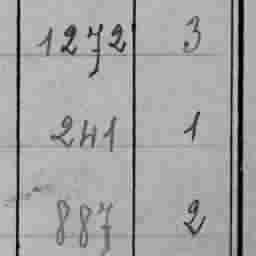 1272 3
241 1
887 2